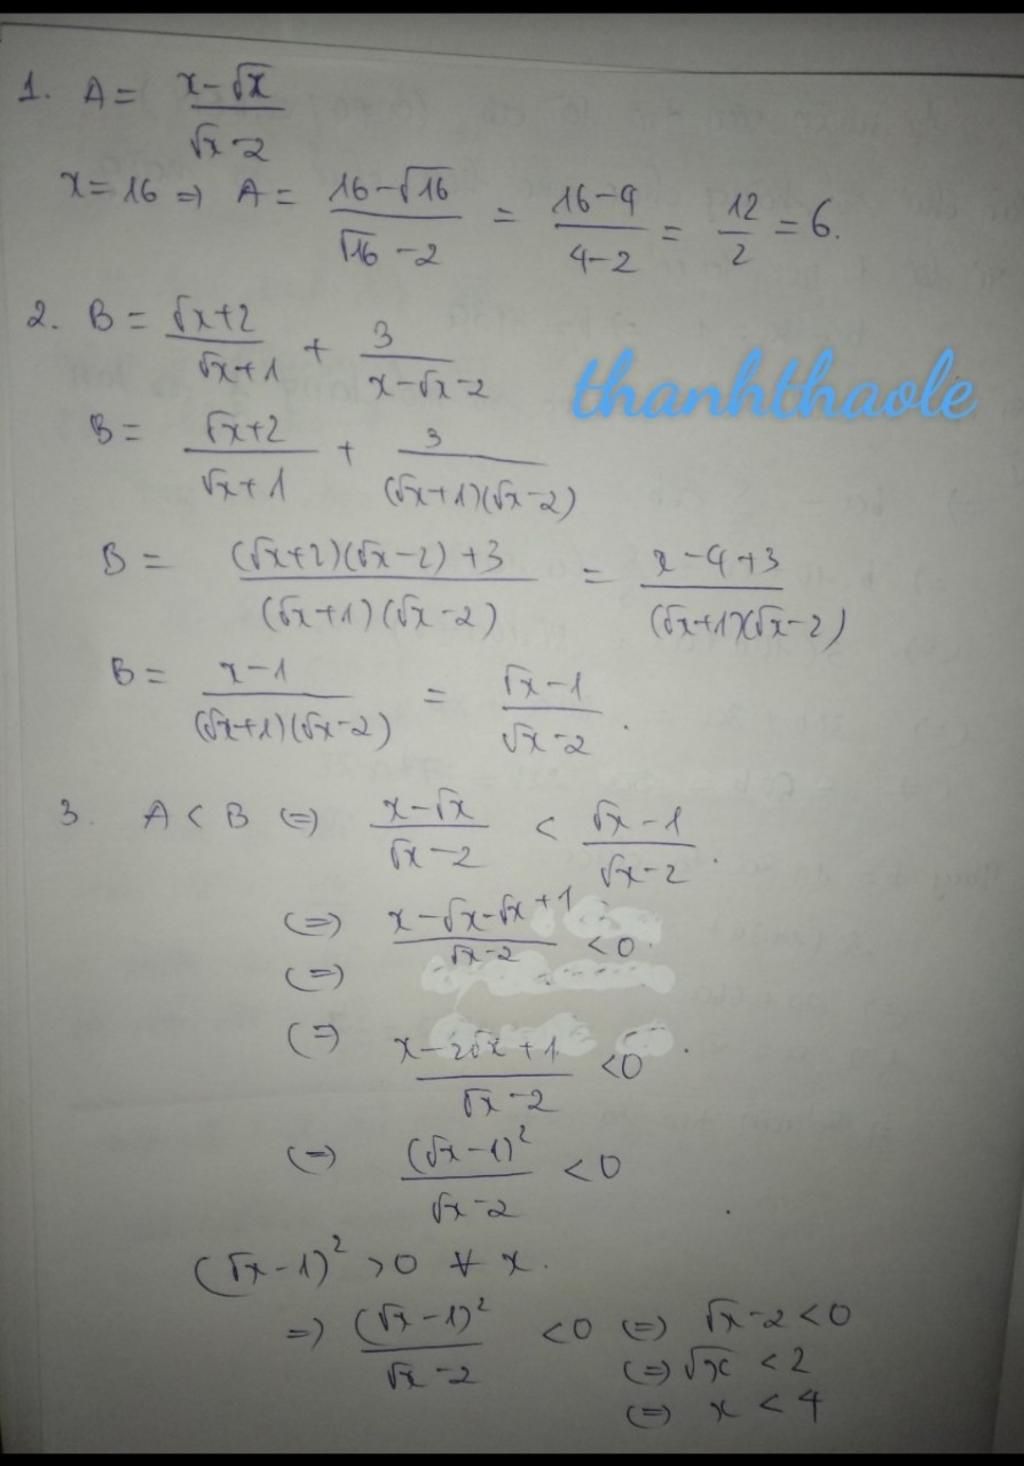 1. A = (x-√x)/(√x-2)
x=16 ⇒ A = (16-√16)/(√16-2) = (16-4)/(4-2) = 12/2 = 6.
2. B = (√x+2)/(√x+1) + 3/(x-√x-2)
thanhthaole
B = (√x+2)/(√x+1) + 3/((√x+1)(√x-2))
B = ((√x+2)(√x-2)+3)/((√x+1)(√x-2)) = (x-4+3)/((√x+1)(√x-2))
B = (x-1)/((√x+1)(√x-2)) = (√x-1)/(√x-2).
3. A < B (=) (x-√x)/(√x-2) < (√x-1)/(√x-2).
(=) (x-√x-√x+1)/(√x-2) <0.
(=)
(=) (x-2√x+1)/(√x-2) <0
(=) (√x-1)²/(√x-2) <0
(√x-1)² >0 ∀ x.
=) (√x-1)²/(√x-2) <0 (=) √x-2<0
(=) √x <2
(=) x <4